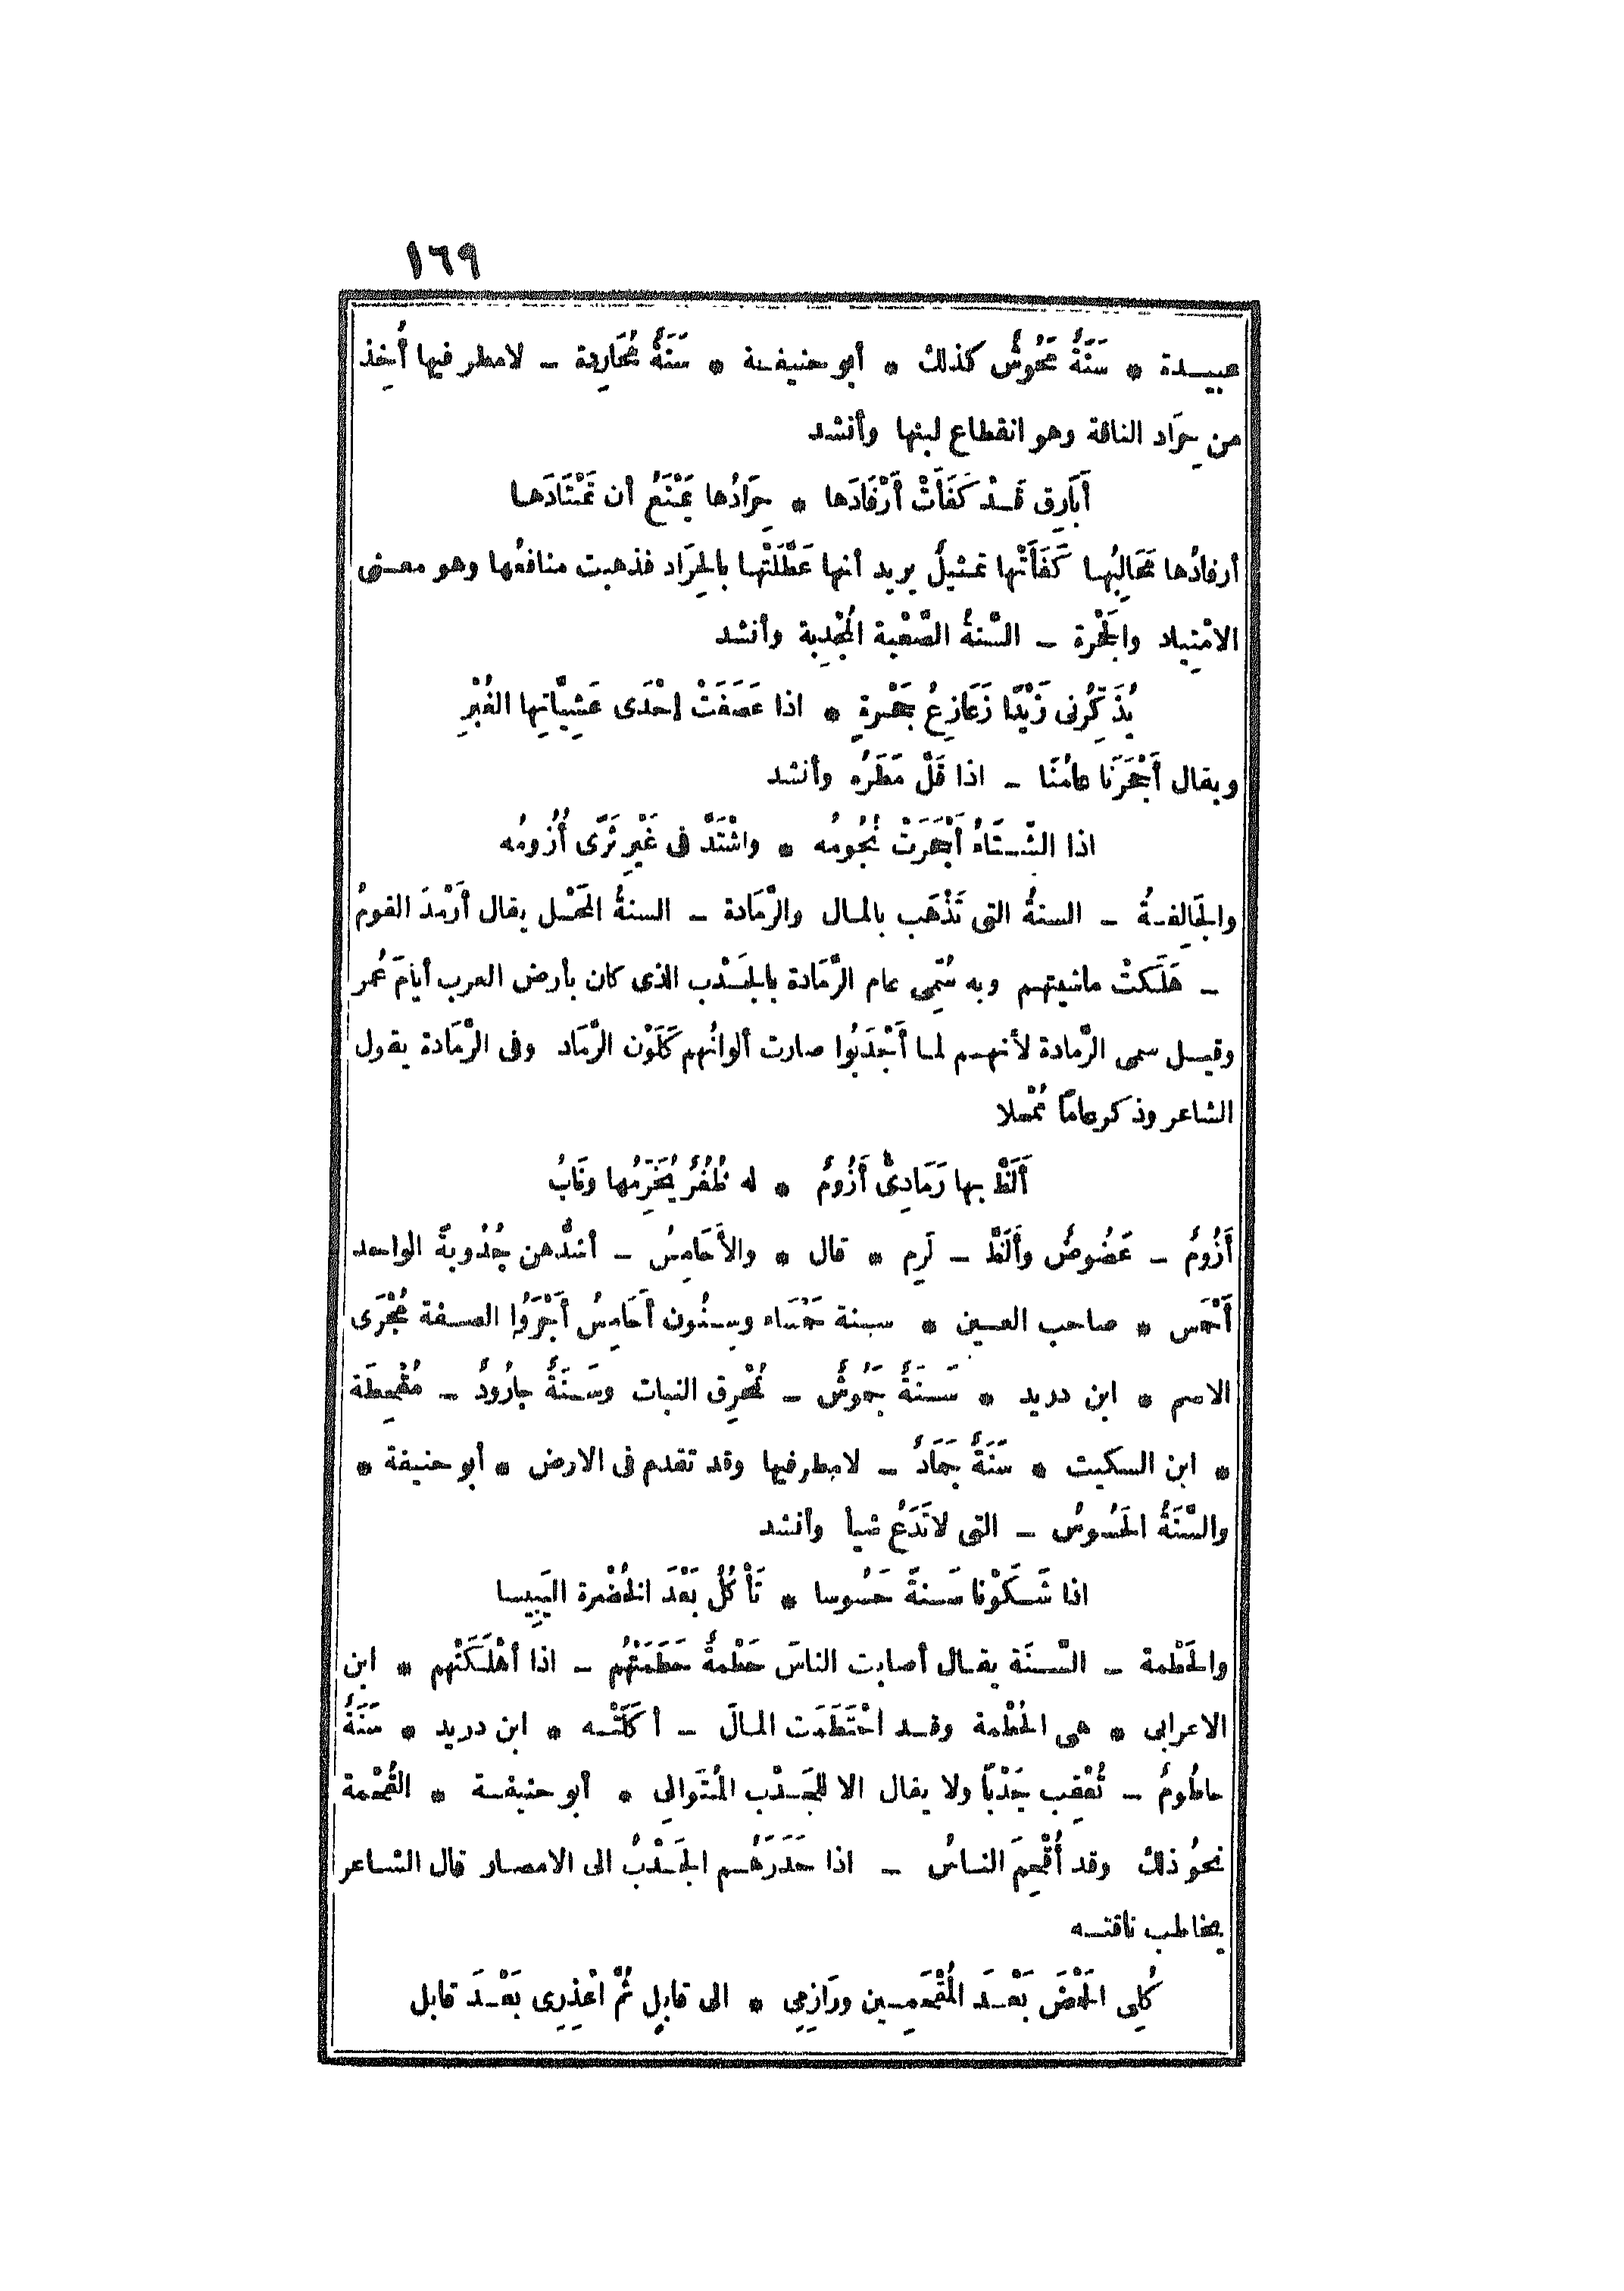 ١٦٩
عبيدة * سَنَةٌ مَحُوشٌ كذلك * أبو حنيفة * سَنَةٌ مُحَارِدة - لا مطر فيها أُخِذ
من حِرَاد الناقة وهو انقطاع لبنها وأنشد
أَبَارِق قَدْ كَفَأَتْ أَرْفَادَها * حِرَادُها يَمْنَعُ أن تَمْتَادَها
أرفادُها مَحَالِبُها كَفَأَتْها تمثيلٌ يريد أنها عَطَّلَتْها بالحِرَاد فذهبت منافعُها وهو معنى
الامْتِياد والجَحْرة - السَّنةُ الصَّعْبة المُجْدِبة وأنشد
يُذَكِّرُنى زَيْدًا زَعَازِعُ جَحْرةٍ * اذا عَصَفَتْ احْدَى عَشِيَّاتِها الغُبْرِ
ويقال أَجْحَرَنَا عامُنَا - اذا قَلَّ مَطَرُه وأنشد
اذا الشِّتَاءُ أَجْحَرَتْ نُجُومُه * واشْتَدَّ فى غَيْرِ ثَرًى أُزُومُه
والجَالِفةُ - السنةُ التى تَذْهَب بالمال والرَّمَادة - السنةُ المَحْل يقال أَرْمَدَ القومُ
- هَلَكتْ ماشيتهم وبه سُمِّى عام الرَّمَادة بالجَدْب الذى كان بأرض العرب أيامَ عُمر
وقيل سمى الرَّمادة لأنهم لما أَجْدَبُوا صارت ألوانُهم كَلَوْن الرَّمَاد وفى الرَّمَادة يقول
الشاعر وذكر عامًا مُمْحلا
أَلَظَّ بها رَمَادِىٌّ أَزُومٌ * له ظُفُرٌ يُخَرِّمُها ونَابُ
أَزُومٌ - عَضُوضٌ وأَلَظَّ - لَزِم * قال * والأَحَامِسُ - أشدُّهن جُدُوبةً الواحد
أَحْمَس * صاحب العين * سنة حَمْسَاء وسِنُون أَحَامِسُ أَجْرَوُا الصفة مُجْرَى
الاسم * ابن دريد * سَنَةٌ جَمُوشٌ - تُحْرِق النبات وسَنَةٌ جارُودٌ - مُقْحِطَة
* ابن السكيت * سَنَةٌ جَمَادٌ - لا مطر فيها وقد تقدم فى الارض * أبو حنيفة *
والسَّنَةُ الحَسُوسُ - التى لا تَدَعُ شيأ وأنشد
انا شَكَوْنا سَنةً حَسُوسا * تَأْكُلُ بَعْدَ الخُضْرة اليَبِيسا
والحَطْمة - السَّنَة يقال أصابت الناسَ حَطْمةٌ حَطَمَتْهُم - اذا أَهْلَكَتْهم * ابن
الاعرابى * هى الحُطْمة وقد احْتَطَمَت المالَ - أكَلَتْه * ابن دريد * سَنَةٌ
حاطُومٌ - تُعْقِب جَدْبًا ولا يقال الا للجَدْب المُتَوالِى * أبو حنيفة * القُحْمة
نحوُ ذلك وقد أُقْحِمَ الناسُ - اذا حَدَرَهُم الجَدْبُ الى الامصار قال الشاعر
يخاطب ناقته
كُلِى الحَمْضَ بَعْدَ المُقْحَمِين ورَازِمِى * الى قابِلٍ ثُمَّ اعْذِرِى بَعْدَ قابل